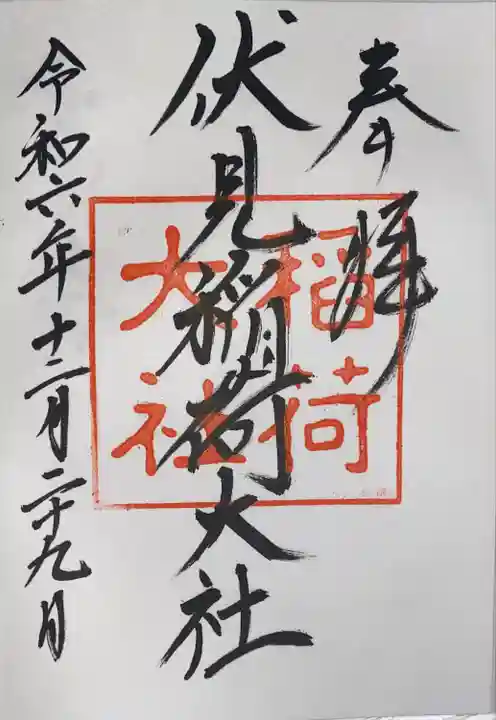 奉拝
伏見稲荷大社
稲荷
大社
令和六年十二月二十九日